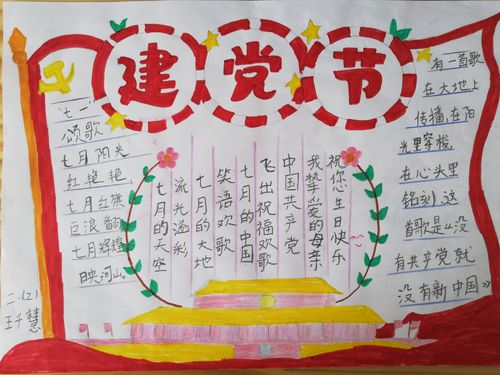 建党节
"七一"
颂歌
七月阳光
红艳艳,
七月红旗
巨浪翻,
七月辉煌
映河山。
祝您生日快乐
我挚爱的母亲
中国共产党
飞出祝福欢歌
七月的中国
笑语欢歌
七月的大地
流光溢彩
七月的天空
有一首歌
在大地上
传播,在阳
光里穿梭,
在心头里
铭刻,这
首歌是《没
有共产党就
没有新中国》
二.(2)
王千慧